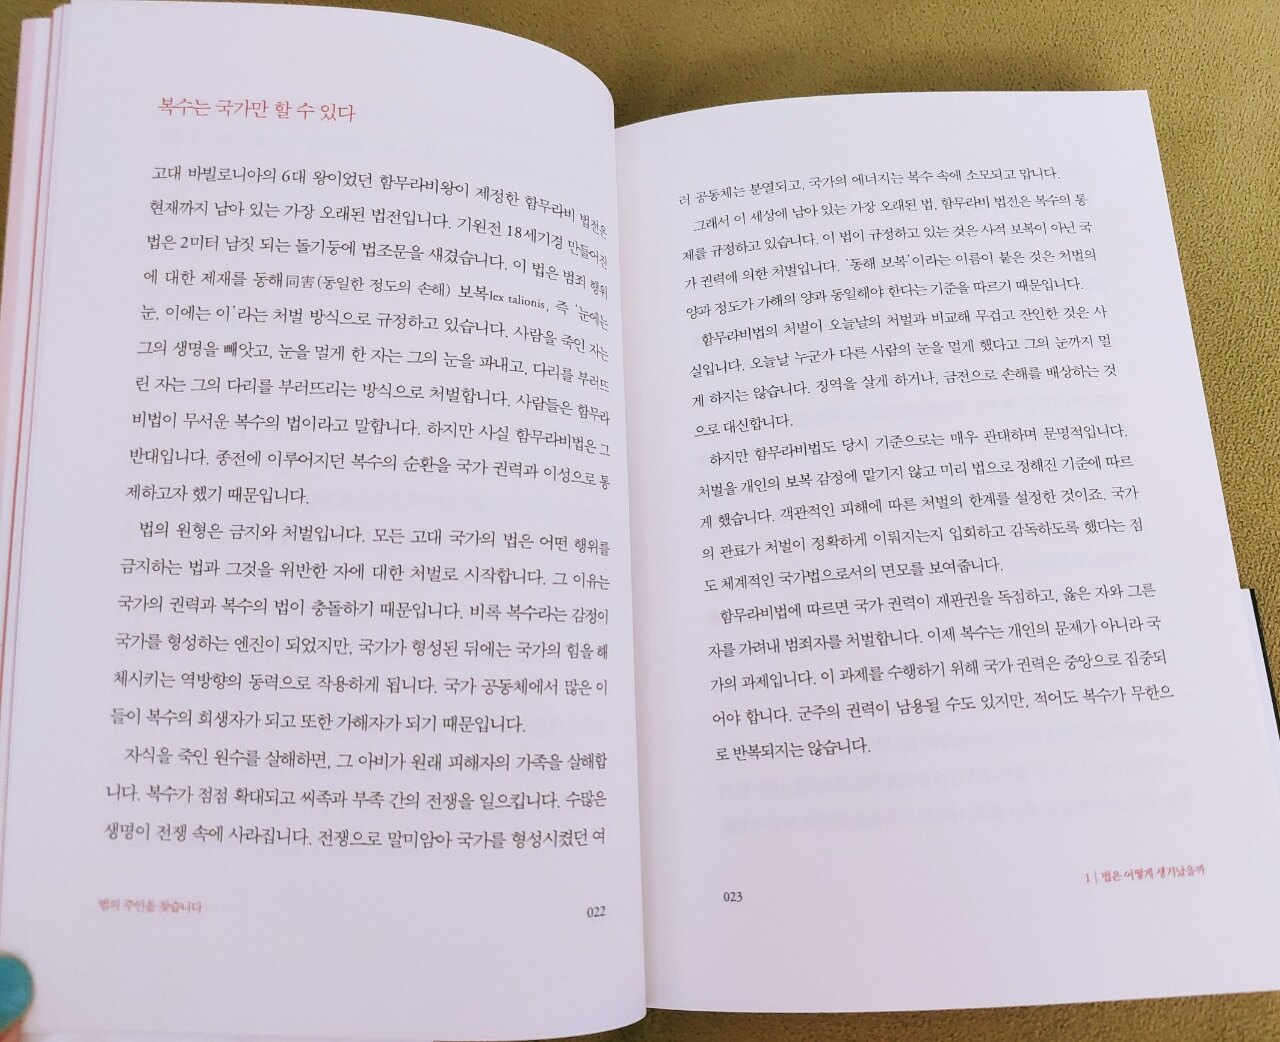 복수는 국가만 할 수 있다
고대 바빌로니아의 6대 왕이었던 함무라비왕이 제정한 함무라비 법전은
현재까지 남아 있는 가장 오래된 법전입니다. 기원전 18세기경 만들어진
법은 2미터 남짓 되는 돌기둥에 법조문을 새겼습니다. 이 법은 범죄 행위
에 대한 제재를 동해同害(동일한 정도의 손해) 보복lex talionis, 즉 ‘눈에는
눈, 이에는 이’라는 처벌 방식으로 규정하고 있습니다. 사람을 죽인 자는
그의 생명을 빼앗고, 눈을 멀게 한 자는 그의 눈을 파내고, 다리를 부러뜨
린 자는 그의 다리를 부러뜨리는 방식으로 처벌합니다. 사람들은 함무라
비법이 무서운 복수의 법이라고 말합니다. 하지만 사실 함무라비법은 그
반대입니다. 종전에 이루어지던 복수의 순환을 국가 권력과 이성으로 통
제하고자 했기 때문입니다.
법의 원형은 금지와 처벌입니다. 모든 고대 국가의 법은 어떤 행위를
금지하는 법과 그것을 위반한 자에 대한 처벌로 시작합니다. 그 이유는
국가의 권력과 복수의 법이 충돌하기 때문입니다. 비록 복수라는 감정이
국가를 형성하는 엔진이 되었지만, 국가가 형성된 뒤에는 국가의 힘을 해
체시키는 역방향의 동력으로 작용하게 됩니다. 국가 공동체에서 많은 이
들이 복수의 희생자가 되고 또한 가해자가 되기 때문입니다.
자식을 죽인 원수를 살해하면, 그 아비가 원래 피해자의 가족을 살해합
니다. 복수가 점점 확대되고 씨족과 부족 간의 전쟁을 일으킵니다. 수많은
생명이 전쟁 속에 사라집니다. 전쟁으로 말미암아 국가를 형성시켰던 여
법의 주인을 찾습니다
022
러 공동체는 분열되고, 국가의 에너지는 복수 속에 소모되고 맙니다.
그래서 이 세상에 남아 있는 가장 오래된 법, 함무라비 법전은 복수의 통
제를 규정하고 있습니다. 이 법이 규정하고 있는 것은 사적 보복이 아닌 국
가 권력에 의한 처벌입니다. ‘동해 보복’이라는 이름이 붙은 것은 처벌의
양과 정도가 가해의 양과 동일해야 한다는 기준을 따르기 때문입니다.
함무라비법의 처벌이 오늘날의 처벌과 비교해 무겁고 잔인한 것은 사
실입니다. 오늘날 누군가 다른 사람의 눈을 멀게 했다고 그의 눈까지 멀
게 하지는 않습니다. 징역을 살게 하거나, 금전으로 손해를 배상하는 것
으로 대신합니다.
하지만 함무라비법도 당시 기준으로는 매우 관대하며 문명적입니다.
처벌을 개인의 보복 감정에 맡기지 않고 미리 법으로 정해진 기준에 따르
게 했습니다. 객관적인 피해에 따른 처벌의 한계를 설정한 것이죠. 국가
의 관료가 처벌이 정확하게 이뤄지는지 입회하고 감독하도록 했다는 점
도 체계적인 국가법으로서의 면모를 보여줍니다.
함무라비법에 따르면 국가 권력이 재판권을 독점하고, 옳은 자와 그른
자를 가려내 범죄자를 처벌합니다. 이제 복수는 개인의 문제가 아니라 국
가의 과제입니다. 이 과제를 수행하기 위해 국가 권력은 중앙으로 집중되
어야 합니다. 군주의 권력이 남용될 수도 있지만, 적어도 복수가 무한으
로 반복되지는 않습니다.
1 | 법은 어떻게 생기났을까
023